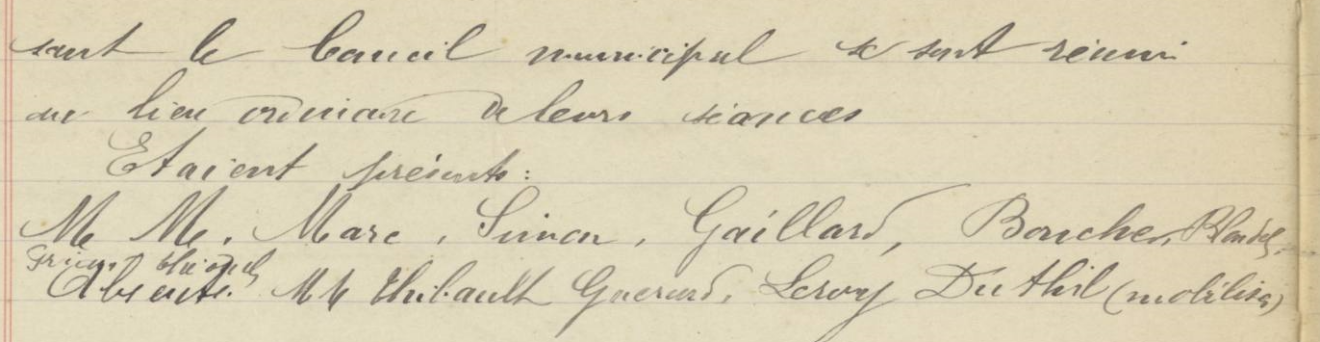 sant le Conseil municipal se sont réuni
au lieu ordinaire de leurs séances
Etaient présents:
M M. Marc, Simon, Gaillard, Boucher, Blondel,
Absents. MM Thibault Guerard, Leroy Duthil (mobilisé)